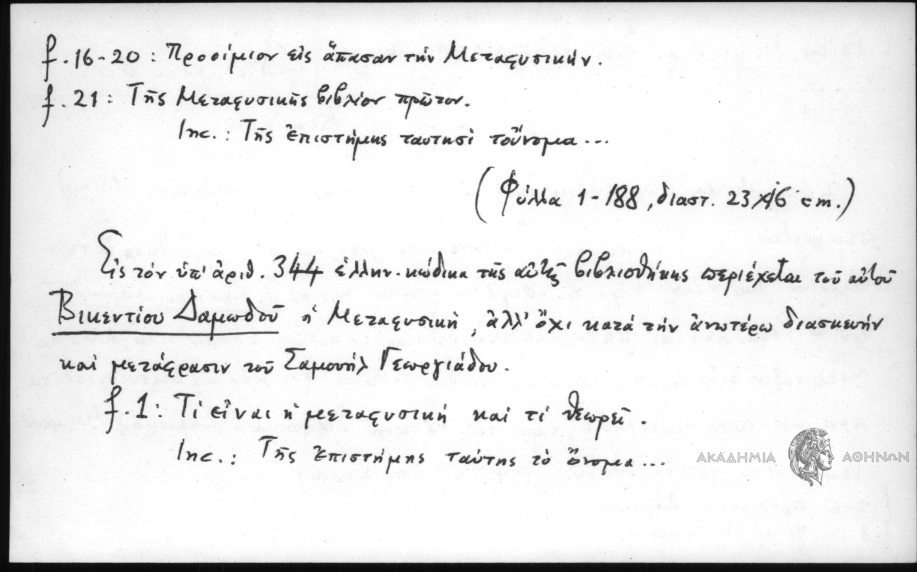 f. 16-20 : Προοίμιον εἰς ἅπασαν τὴν Μεταφυσικήν.
f. 21 : Τῆς Μεταφυσικῆς βιβλίον πρῶτον.
Inc. : Τῆς ἐπιστήμης ταυτησὶ τοὔνομα ...
(Φύλλα 1-188, διαστ. 23×16 cm.)
Εἰς τὸν ὑπ' ἀριθ. 344 ἑλλην. κώδικα τῆς αὐτῆς βιβλιοθήκης περιέχεται τοῦ αὐτοῦ
Βικεντίου Δαμωδοῦ ἡ Μεταφυσική, ἀλλ' ὄχι κατὰ τὴν ἀνωτέρω διασκευὴν
καὶ μετάφρασιν τοῦ Σαμουὴλ Γεωργιάδου.
f. 1 : Τί εἶναι ἡ μεταφυσικὴ καὶ τί θεωρεῖ.
Inc. : Τῆς ἐπιστήμης ταύτης τὸ ὄνομα ...
ΑΚΑΔΗΜΙΑ ΑΘΗΝΩΝ